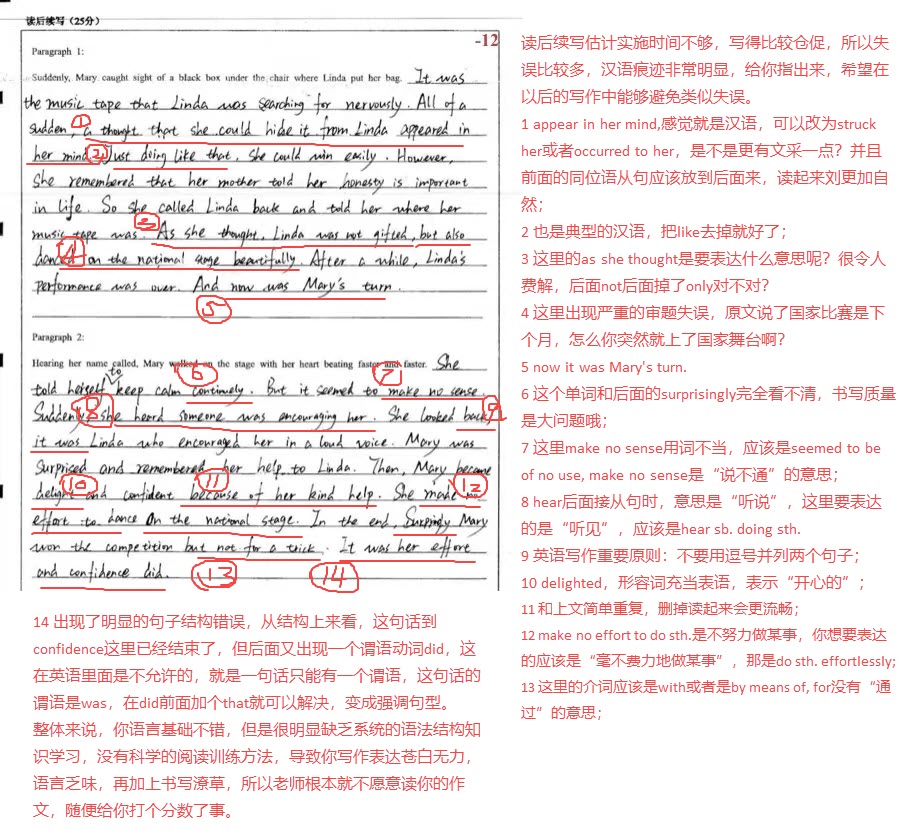 读后续写（25分）
-12
Paragraph 1:
Suddenly, Mary caught sight of a black box under the chair where Linda put her bag. It was
the music tape that Linda was searching for nervously. All of a
sudden, a thought that she could hide it from Linda appeared in
her mind. Just doing like that, she could win easily. However,
she remembered that her mother told her honesty is important
in life. So she called Linda back and told her where her
music tape was. As she thought, Linda was not gifted, but also
danced on the national stage beautifully. After a while, Linda's
performance was over. And now was Mary's turn.
Paragraph 2:
Hearing her name called, Mary walked on the stage with her heart beating faster and faster. She
told herself to keep calm continely. But it seemed to make no sense.
Suddenly, she heard someone was encouraging her. She looked back,
it was Linda who encouraged her in a loud voice. Mary was
surprised and remembered her help to Linda. Then, Mary became
delight and confident because of her kind help. She made no
effort to dance on the national stage. In the end, Surpingy Mary
won the competition but not for a trick. It was her effort
and confidence did.
1
2
3
4
5
6
7
8
9
10
11
12
13
14
读后续写估计实施时间不够，写得比较仓促，所以失
误比较多，汉语痕迹非常明显，给你指出来，希望在
以后的写作中能够避免类似失误。
1 appear in her mind,感觉就是汉语，可以改为struck
her或者occurred to her，是不是更有文采一点？并且
前面的同位语从句应该放到后面来，读起来刘更加自
然；
2 也是典型的汉语，把like去掉就好了；
3 这里的as she thought是要表达什么意思呢？很令人
费解，后面not后面掉了only对不对？
4 这里出现严重的审题失误，原文说了国家比赛是下
个月，怎么你突然就上了国家舞台啊？
5 now it was Mary's turn.
6 这个单词和后面的surprisingly完全看不清，书写质量
是大问题哦；
7 这里make no sense用词不当，应该是seemed to be
of no use, make no sense是“说不通”的意思；
8 hear后面接从句时，意思是“听说”，这里要表达
的是“听见”，应该是hear sb. doing sth.
9 英语写作重要原则：不要用逗号并列两个句子；
10 delighted，形容词充当表语，表示“开心的”；
11 和上文简单重复，删掉读起来会更流畅；
12 make no effort to do sth.是不努力做某事，你想要表达
的应该是“毫不费力地做某事”，那是do sth. effortlessly;
13 这里的介词应该是with或者是by means of, for没有“通
过”的意思；
14 出现了明显的句子结构错误，从结构上来看，这句话到
confidence这里已经结束了，但后面又出现一个谓语动词did，这
在英语里面是不允许的，就是一句话只能有一个谓语，这句话的
谓语是was，在did前面加个that就可以解决，变成强调句型。
整体来说，你语言基础不错，但是很明显缺乏系统的语法结构知
识学习，没有科学的阅读训练方法，导致你写作表达苍白无力，
语言乏味，再加上书写潦草，所以老师根本就不愿意读你的作
文，随便给你打个分数了事。